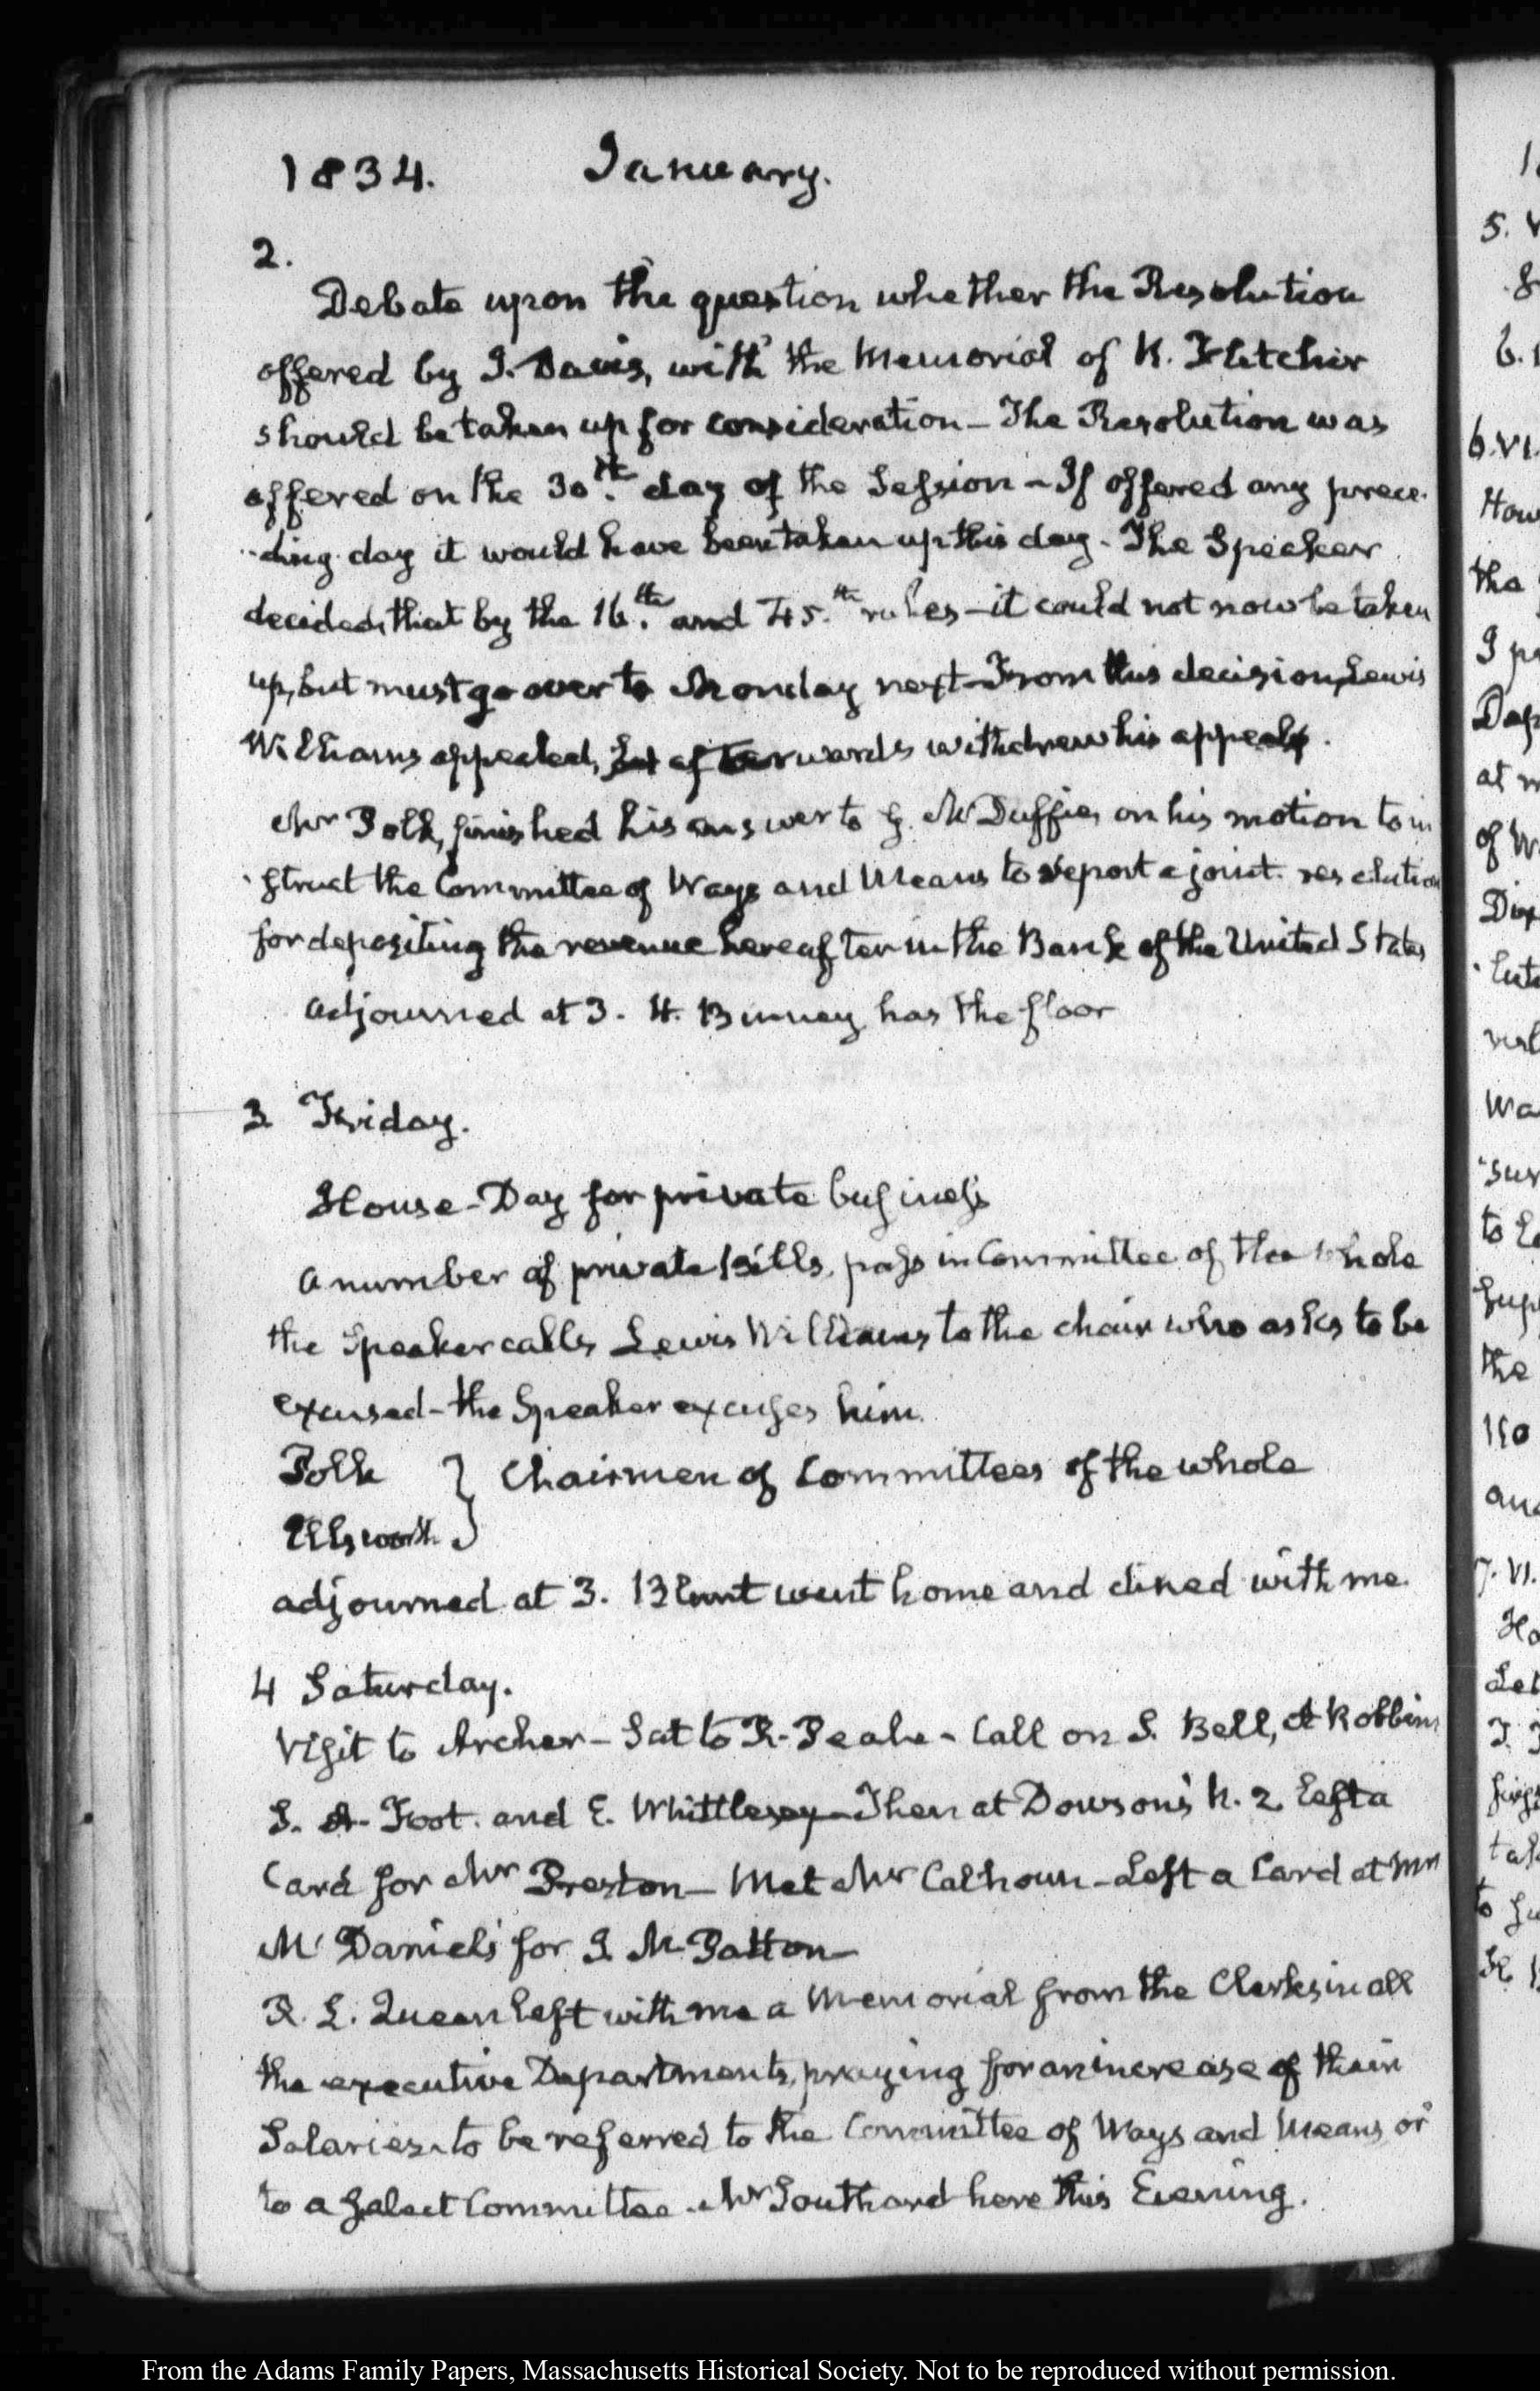 1834. January.
2.
Debate upon the question whether the Resolution
offered by J. Davis, with the Memorial of R. Fletcher
should be taken up for consideration — The Resolution was
offered on the 30th. day of the Session — If offered any prece-
-ding day it would have been taken up this day. The Speaker
decided, that by the 16th. and 45.th rules — it could not now be taken
up, but must go over to Monday next — From this decision, Lewis
Williams appealed, but afterwards withdrew his appeal.
Mr Polk, finished his answer to G. McDuffie, on his motion to in
-struct the Committee of Ways and Means to report a joint resolution
for depositing the revenue hereafter in the Bank of the United States
adjourned at 3. H. Binney has the floor
3 Friday.
House — Day for private business
a number of private bills, pass in Committee of the whole
the Speaker calls Lewis Williams to the chair who asks to be
excused — the Speaker excuses him.
Polk } Chairmen of Committees of the whole
Ellsworth
adjourned at 3. Blunt went home and dined with me.
4 Saturday.
Visit to Archer — Sat to R. Peale — Call on S. Bell, A Robbins
S. A. Foot. and E. Whittlesey — Then at Dowson's N. 2 left a
Card for Mr Preston — Met Mr Calhoun — Left a Card at Mrs
McDaniels' for J. M. Patton —
R. L. Queen left with me a Memorial from the Clerks in all
the executive Departments, praying for an increase of their
Salaries — to be referred to the Committee of Ways and Means, or
to a Select Committee. Mr Southard here this Evening.
From the Adams Family Papers, Massachusetts Historical Society. Not to be reproduced without permission.